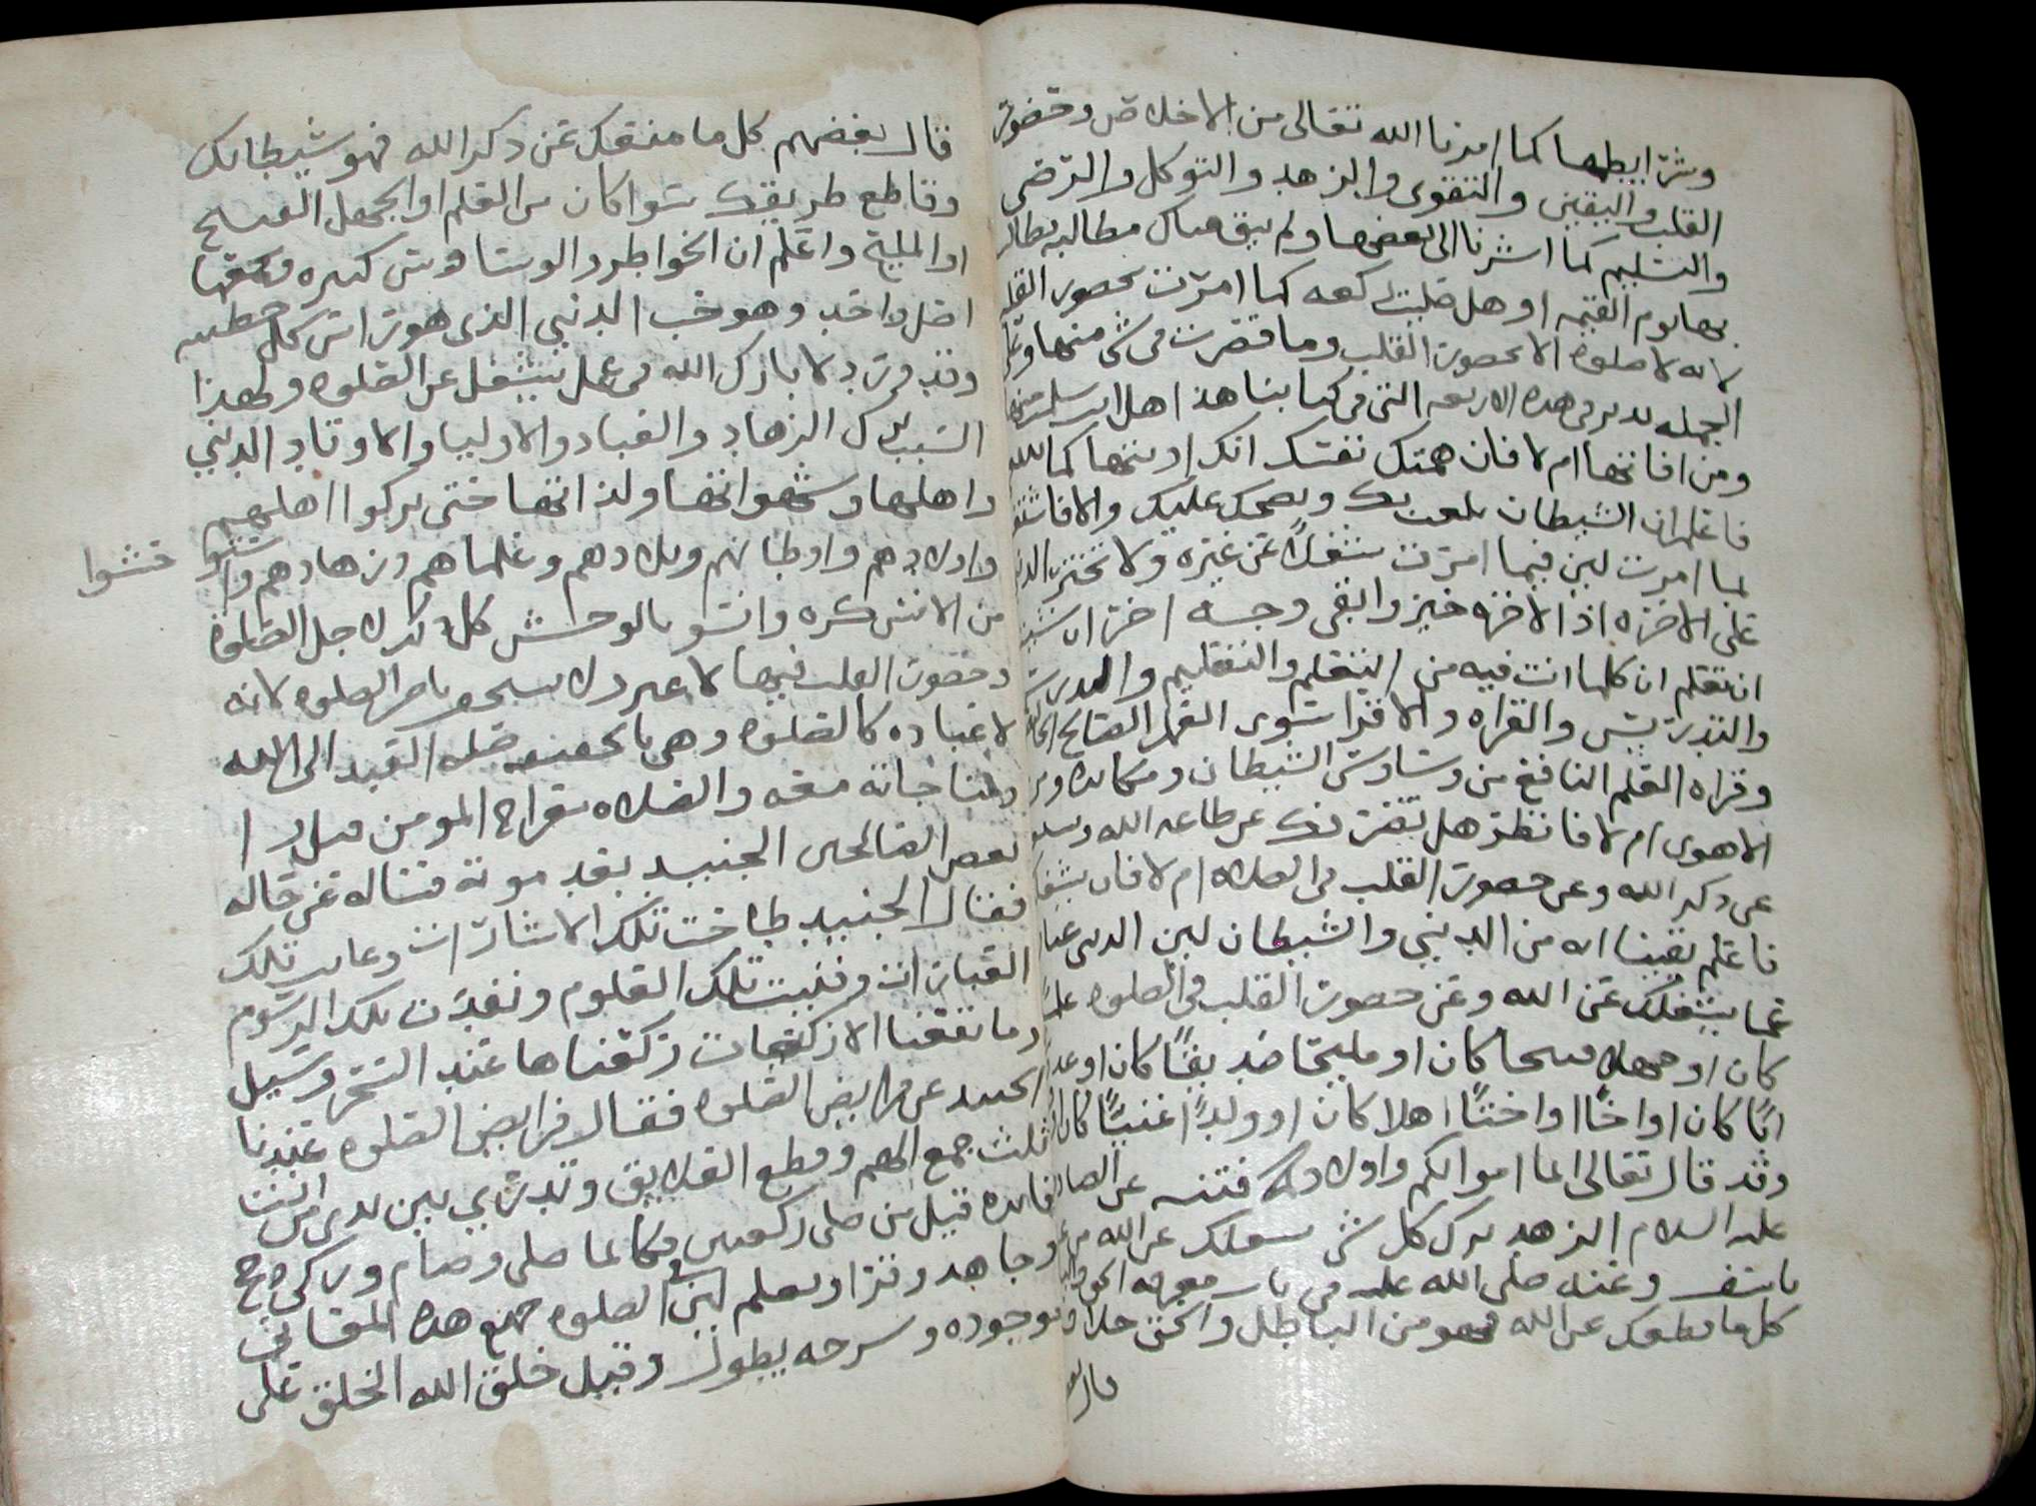 وشرايطها كما امرنا الله تعالى من الاخلاص وحضور
القلب واليقين والتقوى والزهد والتوكل والرضى
والتسليم كما اشرنا الى بعضها ولم يبق هناك مطالبه
بها يوم القيمه او هل صليت ركعه كما امرت بحضور القلب
لانه لا صلوه الا بحضور القلب وما قصرت في شي منها
الجمله تدبر في هذه الاربعه التي في كتابنا هذا هل انت سلمت منها
ومن افاتها ام لا فان همتك نفسك انك اديتها كما
فاعلم ان الشيطان يلعب بك ويضحك عليك والا فاشتغل
لما امرت لين فيما امرت شغلا عن غيره ولا تختر الدنيا
على الاخره اذ الاخره خير وابقى وجه اخر ان
ان تعلم ان كلما انت فيه من التعلم والتعليم والدرس
والتدريس والقراه والاقرا سوى العمل الصالح
وقراه العلم النافع من وساوس الشيطان ومكايده
الاهوى ام لا فانظر هل يضرك عن طاعه الله
عن ذكر الله وعن حضور القلب في الصلاه ام لا فان
فاعلم يقينا انه من الدنيى والشيطان لين الدنيى
عما يشغلك عن الله وعن حضور القلب في الصلوه علما
كان او جهلا قبيحا كان او مليحا صديقا كان او عدوا
ابا كان او اخا او اختا اهلا كان او ولدا غنيا كان
وقد قال تعالى انما اموالكم واولادكم فتنه عن الصادق
عليه السلام الزهد ترك كل شي يشغلك عن الله من غير
تاسف وعنه صلى الله عليه في باب معرفه الحق
كل ما قطعك عن الله فهو من الباطل والحق خلاف
قال بعضهم
قال بعضهم كل ما منعك عن ذكر الله فهو شيطانك
وقاطع طريقك سوا كان من العلم او الجهل القبيح
او المليح واعلم ان الخواطر والوساوس كثيره ومنبعها
اصل واحد وهو حب الدنيى الذي هو راس كل خطيه
وقد ورد لا بارك الله في عمل يشغل عن الصلوه ولهذا
السبب ترك الزهاد والعباد والاوليا والاوتاد الدنيى
واهلها وشهواتها ولذاتها حتى تركوا اهليهم
واولادهم واوطانهم وبلادهم وعلماهم وزهادهم واستو حشوا
من الانس كره وانسو بالوحش كل ذلك لاجل الصلوه
وحضور القلب فيها لا غير ذلك يستحق باهل الصلوه لانه
لا عباده كالصلوه وهي بالحقيقه صله العبد الى الله
ومناجاته معه والصلاه معراج المومن قيل را
بعض الصالحين الجنيد بعد موته فساله عن حاله
فقال الجنيد طاحت تلك الاشارات وغابت تلك
العبارات وفنيت تلك العلوم ونفدت تلك الرسوم
وما نفعنا الا ركعات ركعناها عند السحر وسيل
الجنيد عن فرايض الصلوه فقال فرايض الصلوه عندنا
ثلث جمع الهم وقطع العلايق وتدري بين يدي من انت
فايده قيل من صلى ركعتين فكانما صلى وصام وزكى وحج
وجاهد وقرا وتعلم لين الصلوه جمع هذه المعاني
موجوده وشرحه يطول وقيل خلق الله الخلق على